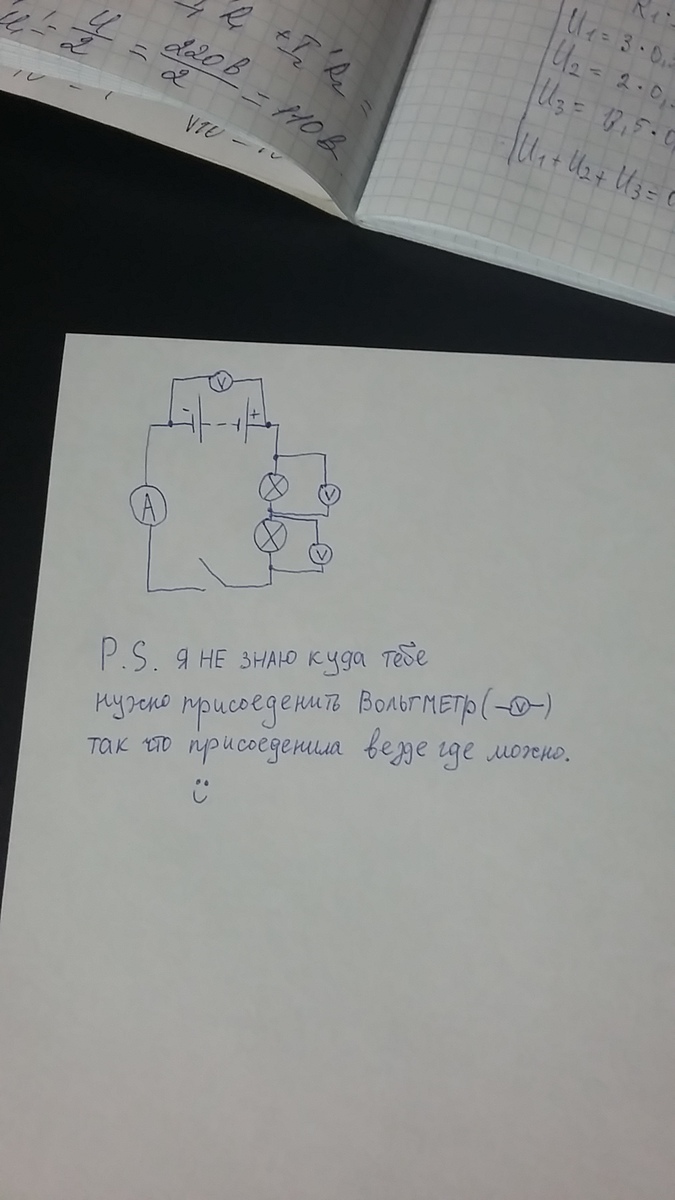 + I₂' R₂ =
U₁' = U/2 = 220В/2 = 110В
U₁ = 3 · 0,
U₂ = 2 · 0,
U₁ + U₂ + U₃ =
V
- +
V
A
V
P.S. Я НЕ ЗНАЮ куда тебе
нужно присоеденить ВОЛЬТМЕТР ( -V- )
так что присоеденила везде где можно.